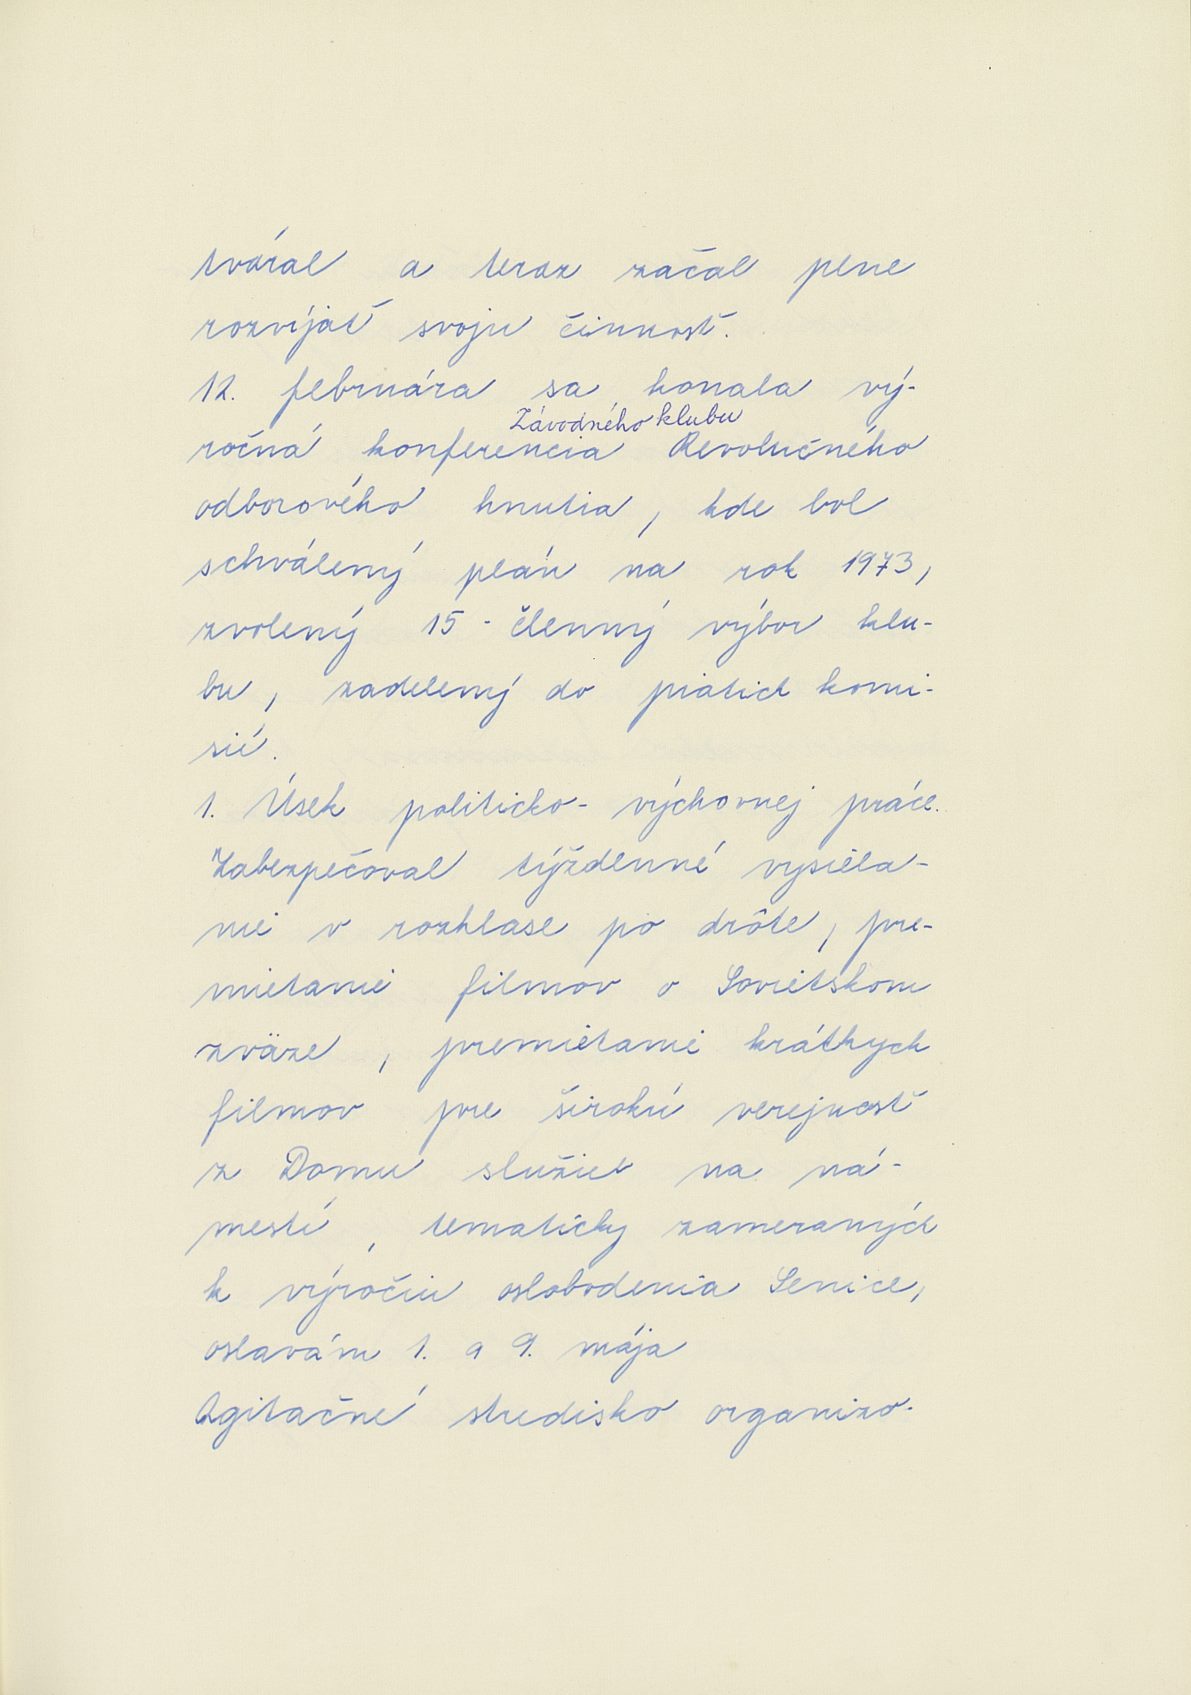 tváral a teraz začal plne
rozvíjať svoju činnosť.
12. februára sa konala vý-
Závodného klubu
ročná konferencia Revolučného
odborového hnutia, kde bol
schválený plán na rok 1973,
zvolený 15-členný výbor klu-
bu, zadelený do piatich komi-
sií.
1. Úsek politicko-výchovnej práce.
Zabezpečoval týždenné vysiela-
nie v rozhlase po drôte, pre-
mietanie filmov o Sovietskom
zväze, premietanie krátkych
filmov pre širokú verejnosť
z Domu služieb na ná-
mestí, tematicky zameraných
k výročiu oslobodenia Senice,
oslavám 1. a 9. mája
Agitačné stredisko organizo-